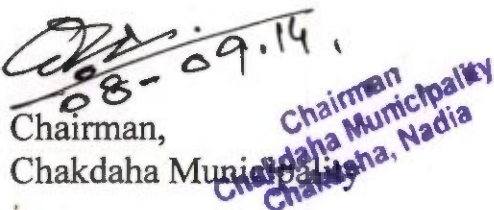 08-09.14.
Chairman,
Chakdaha Municipality
Chairman
Chakdaha Municipality
Chakdaha, Nadia